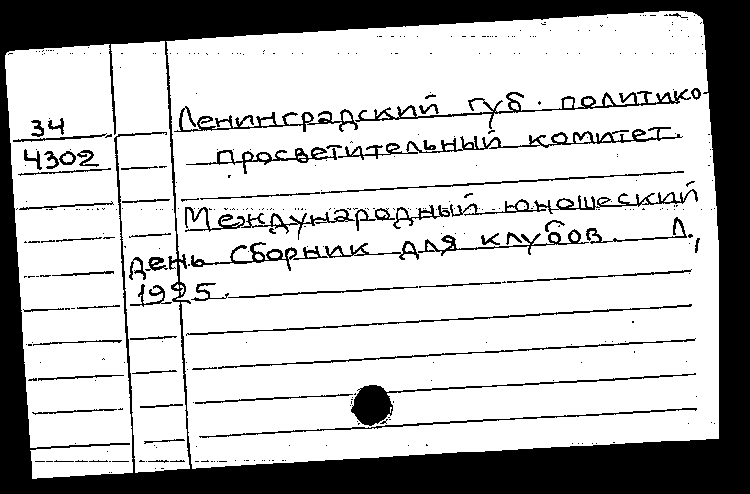 34
4302
Ленинградский губ. политико-
просветительный комитет.
Международный юношеский
день Сборник для клубов. Л.,
1925.